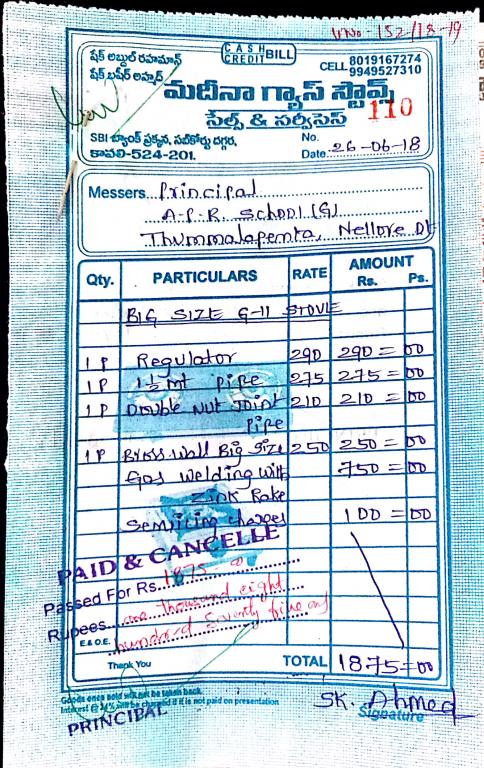 V.No - 152/18-19
షేక్ అబ్దుల్ రహమాన్
షేక్ బషీర్ అహ్మద్
CASH
CREDIT BILL
CELL 8019167274
9949527310
మదీనా గ్యాస్ స్టౌవ్స్
110
సేల్స్ & సర్వీసెస్
SBI బ్యాంక్ ప్రక్కన, సబ్‌కోర్టు దగ్గర,
కావలి-524-201.
No.
Date 26-06-18
Messers Principal
A.P.R. School (G)
Thummalapenta, Nellore Dt
Qty. PARTICULARS RATE AMOUNT
Rs. Ps.
BIG SIZE G-11 STOVE
1 P Regulator 290 290 = 00
1 P 1½ mt Pipe 275 275 = 00
1 P Double Nut Joint 210 210 = 00
Pipe
1 P Brass Wall Big Size 250 250 = 00
Gas Welding With 750 = 00
Zink Rake
Servicing charges 100 = 00
PAID & CANCELLE
Passed For Rs. 1875-0
Rupees one thousand eight
E.&O.E. hundred Seventy five only
Thank You TOTAL 1875=00
Goods once sold will not be taken back.
Interest @ 24% will be charged if it is not paid on presentation
SK. Ahmed
Signature
PRINCIPAL